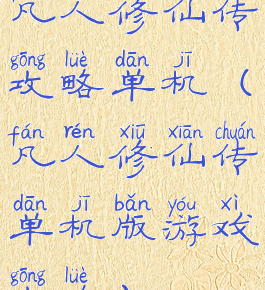 凡人修仙传
gōng lüè dān jī
攻略单机（
fán rén xiū xiān chuán
凡人修仙传
dān jī bǎn yóu xì
单机版游戏
gōng lüè